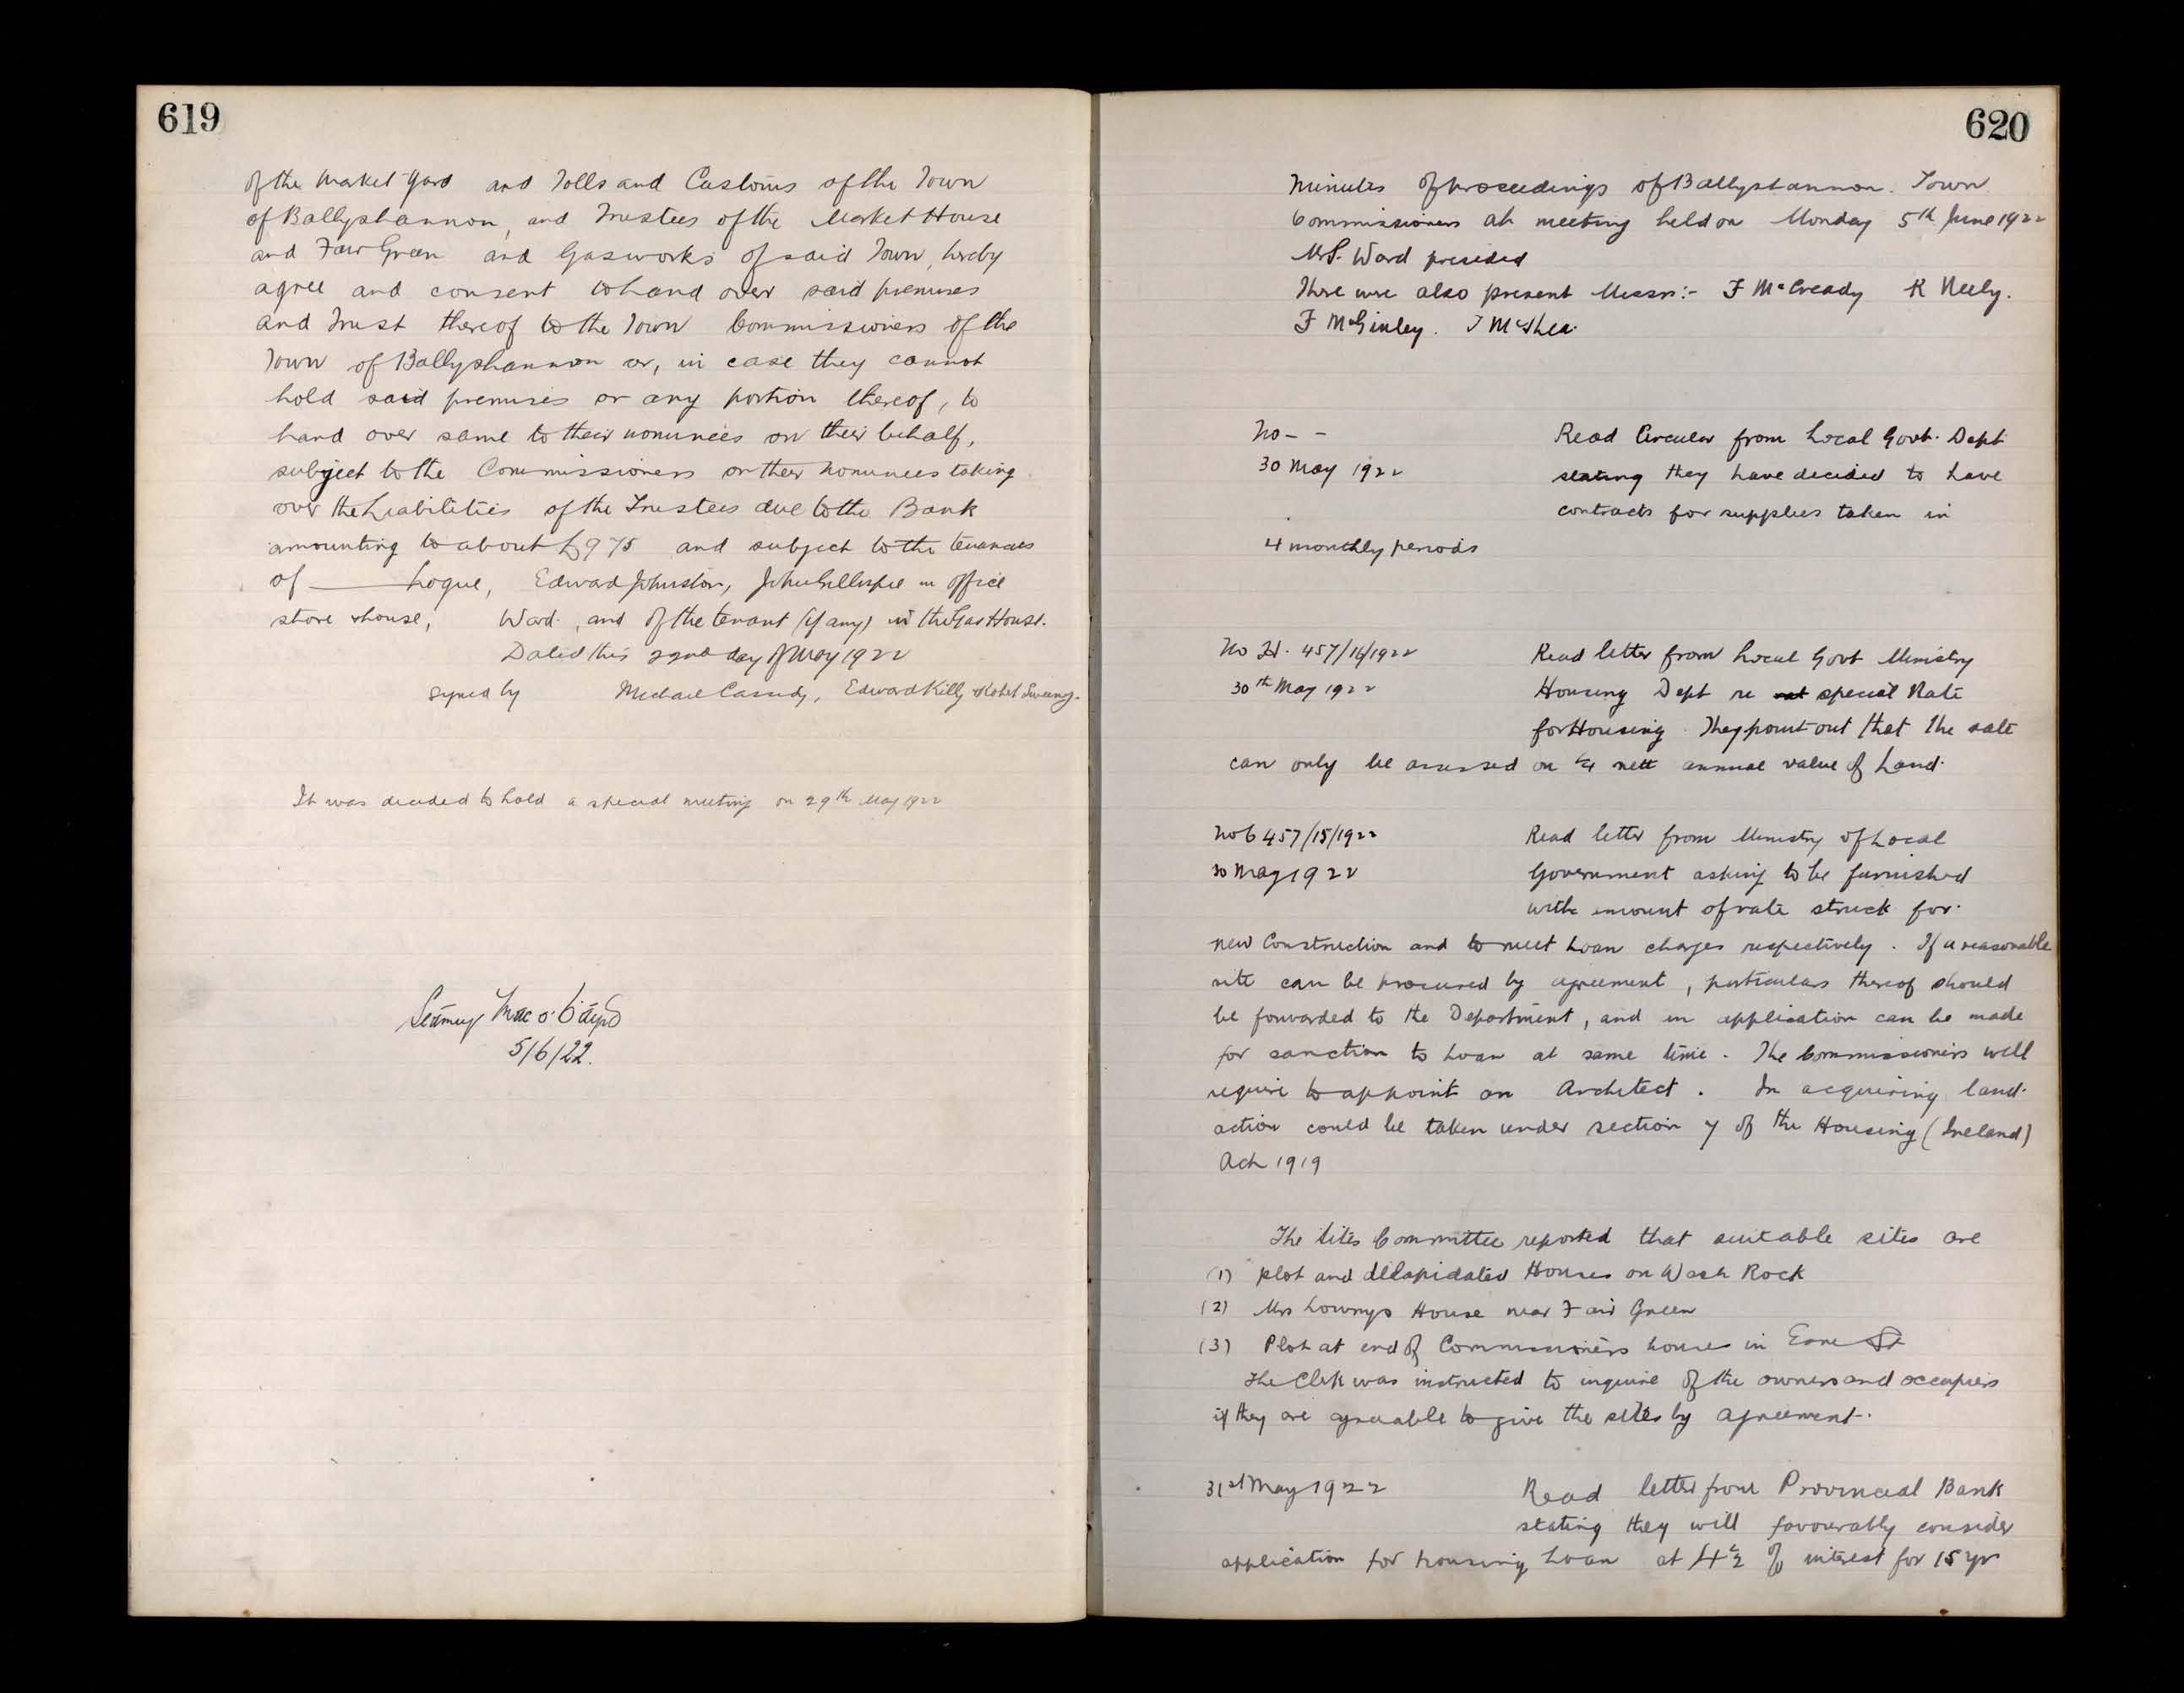 619
of the Market Yard and Tolls and Customs of the Town
of Ballyshannon, and Trustees of the Market House
and Fair Green and Gasworks of said Town, hereby
agree and consent to hand over said premises
and Trust thereof to the Town Commissioners of the
Town of Ballyshannon or, in case they cannot
hold said premises or any portion thereof, to
hand over same to their nominees on their behalf,
subject to the Commissioners or their nominees taking
over the Liabilities of the Trustees due to the Bank
amounting to about £975 and subject to the tenancies
of Logue, Edward Johnston, John Gillespie in office
store & house, Ward, and of the tenant (if any) in the Gas House.
Dated this 22nd day of May 1922
signed by Michael Cassidy, Edward Kelly Robert Sweeny.
It was decided to hold a special meeting on 29th May 1922
Séamus Mac
5/6/22.
620
Minutes of proceedings of Ballyshannon Town
Commissioners at meeting held on Monday 5th June 1922
Mr. Ward presided
There were also present Messrs:- F McCready R Neely.
F McGinley. J McShea.
No - -
30 May 1922
Read Circular from Local Govt. Dept
stating they have decided to have
contracts for supplies taken in
4 monthly periods
No H. 457/16/1922
30th May 1922
Read letter from Local Govt Ministry
Housing Dept re special Rate
for Housing. They point out that the rate
can only be assessed on 1/4 nett annual value of Land.
No 6 457/15/1922
30 May 1922
Read letter from Ministry of Local
Government asking to be furnished
with amount of rate struck for
new Construction and to meet Loan charges respectively. If a reasonable
site can be procured by agreement, particulars thereof should
be forwarded to the Department, and an application can be made
for sanction to Loan at same time. The Commissioners will
require to appoint an Architect. In acquiring land
action could be taken under section 7 of the Housing (Ireland)
Act 1919
The Sites Committee reported that suitable sites are
(1) Plot and dilapidated Houses on Wash Rock
(2) Mrs Lowrys House near Fair Green
(3) Plot at end of Commissioners houses in Erne St
The Clerk was instructed to inquire of the owners and occupiers
if they are agreeable to give the sites by agreement.
31st May 1922
Read letter from Provincial Bank
stating they will favourably consider
application for housing Loan at 4½ % interest for 15 yrs